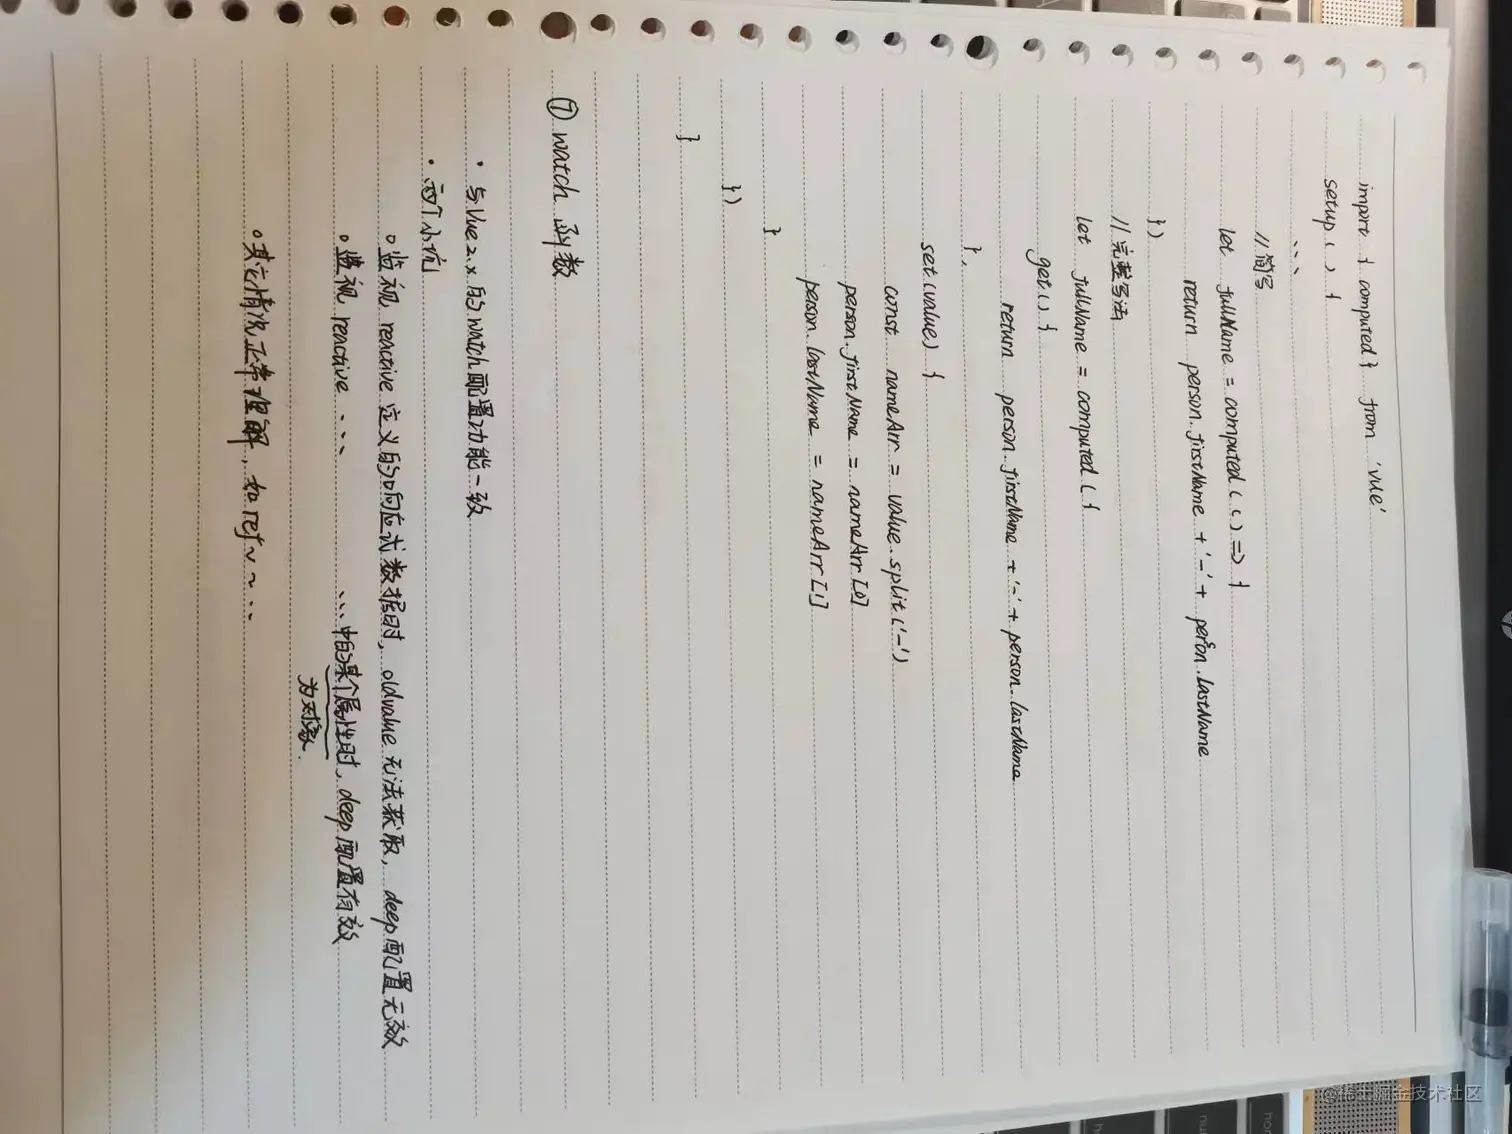 import { computed } from 'vue'
setup ( ) {
...
//简写
let fullName = computed ( ( ) => {
return person.firstName + '-' + person.lastName
})
//完整写法
let fullName = computed ( {
get ( ) {
return person.firstName + '-' + person.lastName
},
set (value) {
const nameArr = value.split('-')
person.firstName = nameArr [0]
person.lastName = nameArr [1]
}
})
}
⑦ watch 函数
· 与Vue2.x的watch配置功能一致
· 两个小坑
。监视 reactive 定义的响应式数据时, oldvalue 无法获取, deep配置无效
。监视 reactive ... ...中的某个属性时, deep配置有效
为对象.
。其它情况正常理解, 如 ref ~ ~ ...
@稀土掘金技术社区
hom
num